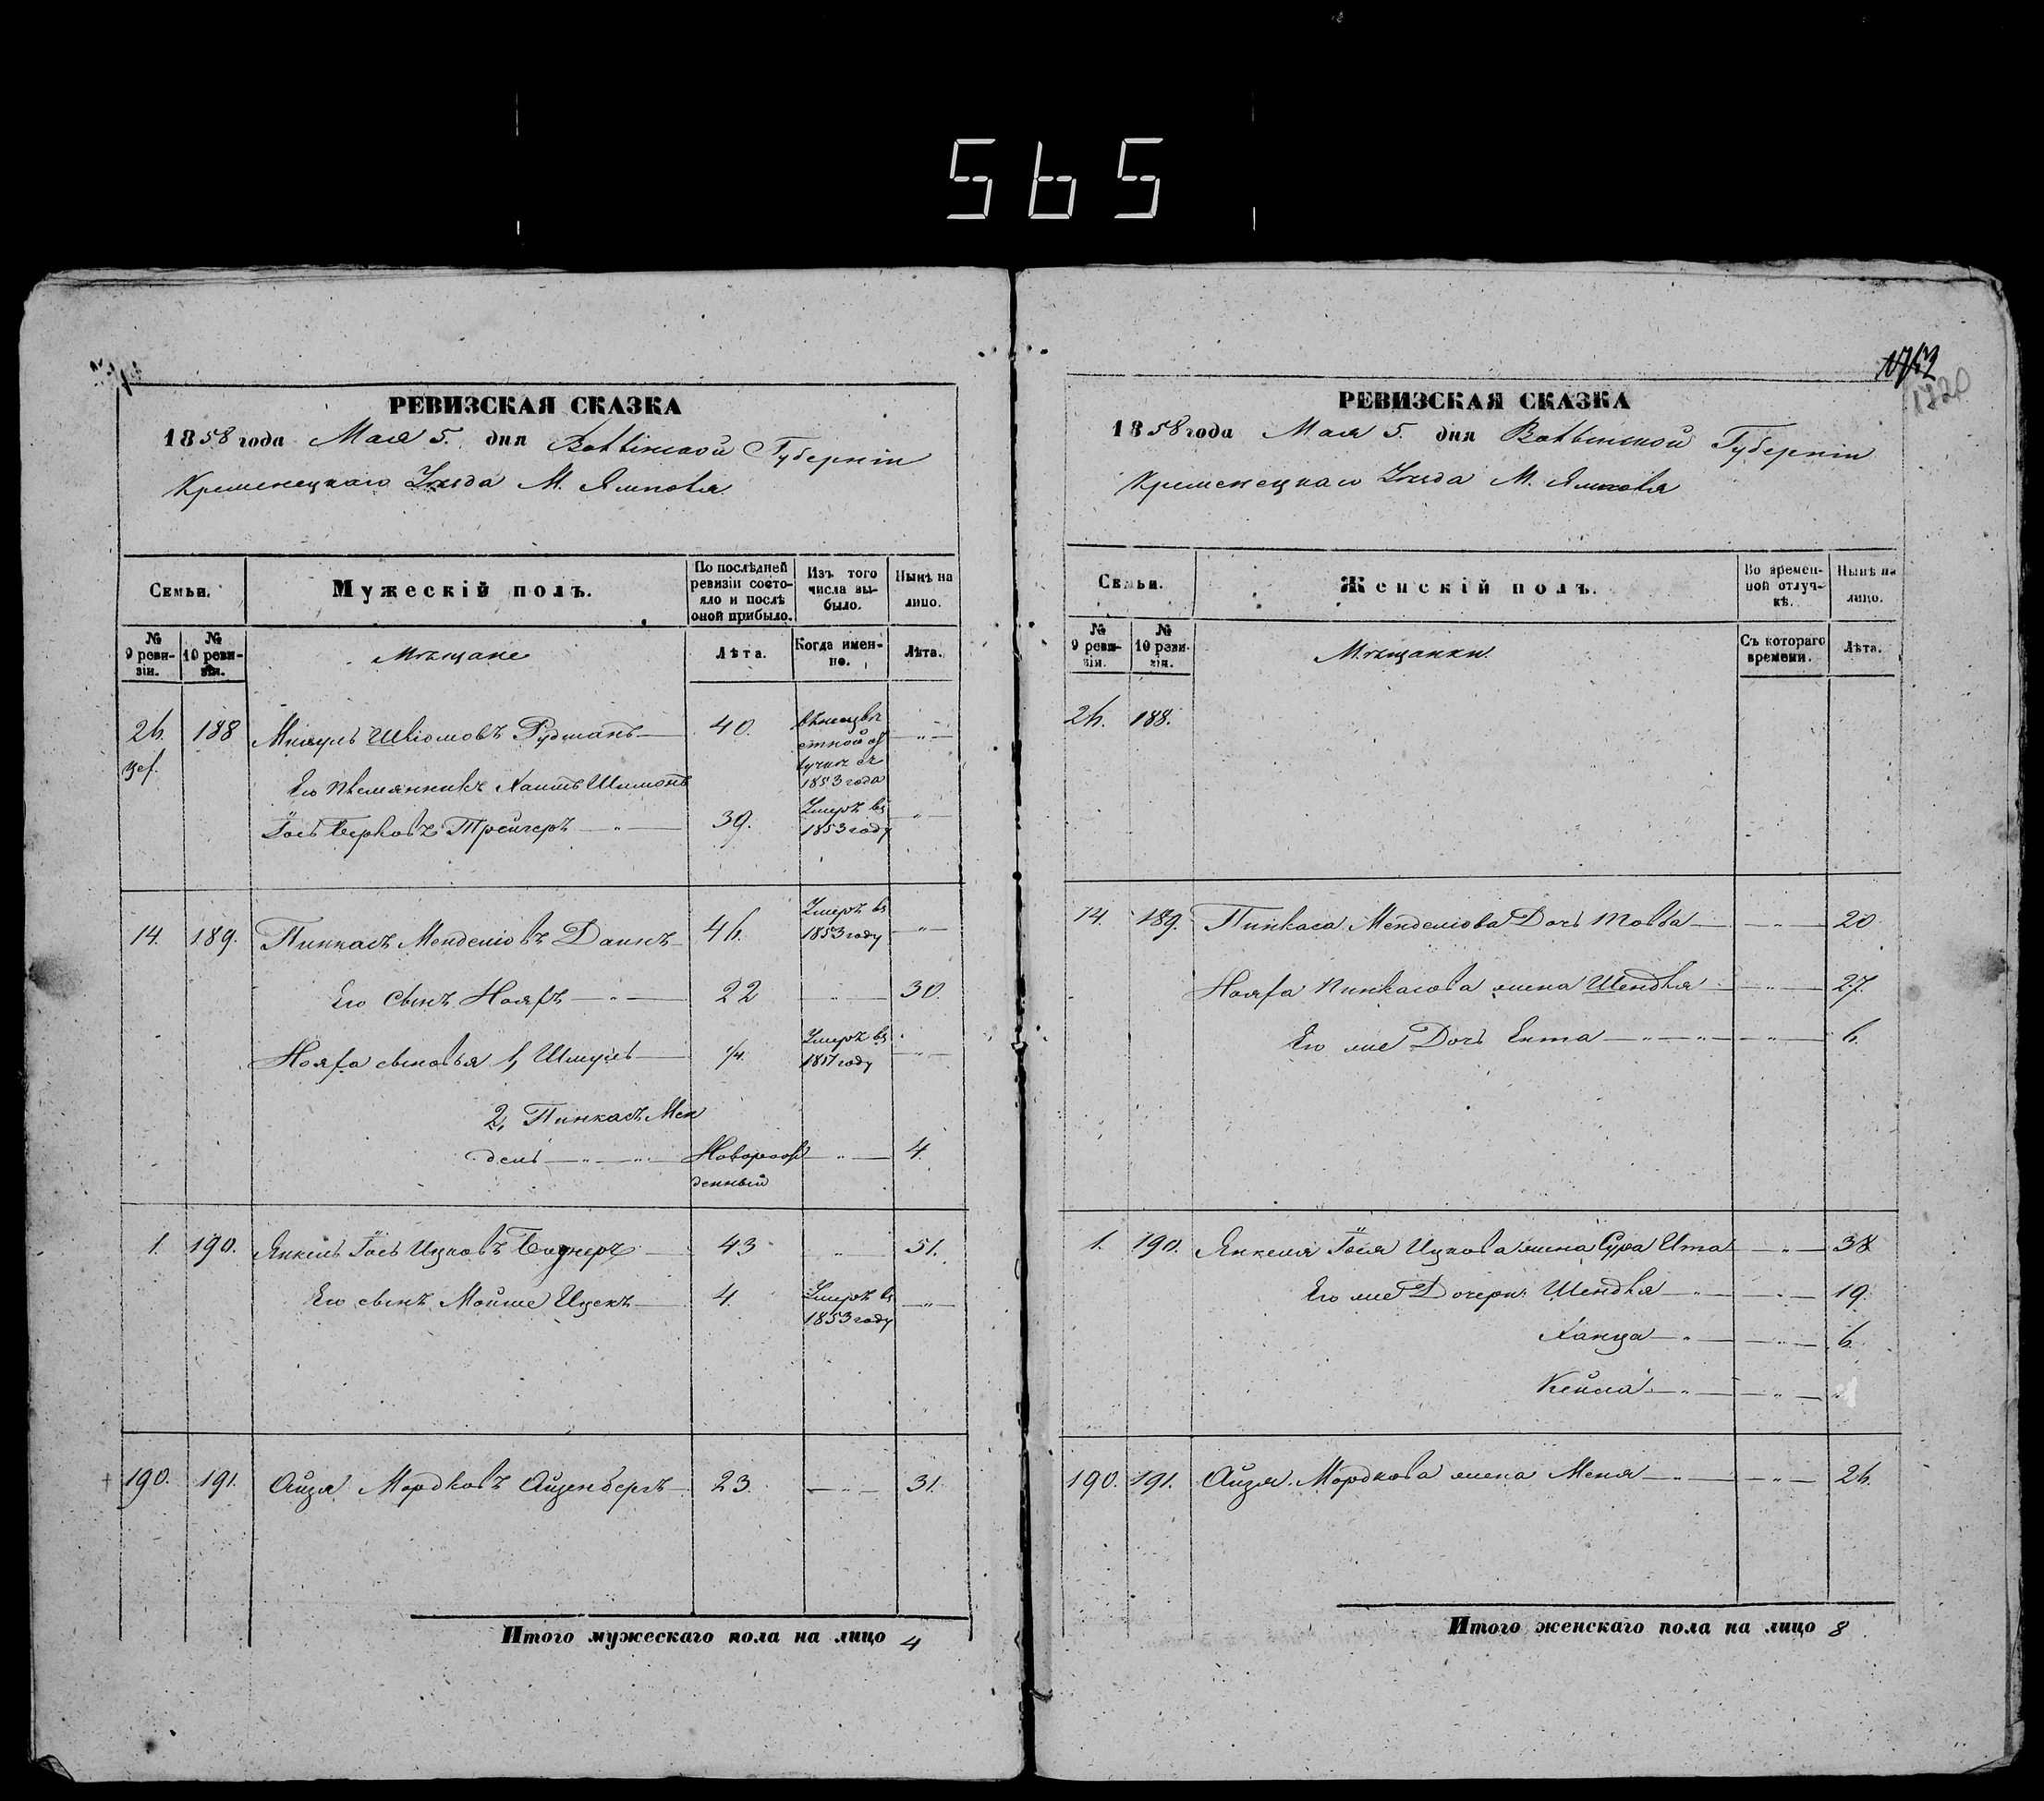 565
РЕВИЗСКАЯ СКАЗКА
1858 года Мая 5. дня Волынской Губерніи
Кременецкаго Уѣзда М. Ямполя
Семьи.
Мужескій полъ.
По послѣдней ревизіи состояло и послѣ оной прибыло.
Изъ того числа выбыло.
Нынѣ на лицо.
№ 9 ревизіи.
№ 10 ревизіи.
Мѣщане
Лѣта.
Когда именно.
Лѣта.
26. 188 Шліомовъ 40.
1853 года
Его племянникъ Хаимъ Шимонъ
Іось Берковъ Трейгеръ 39. Умеръ въ 1853 году
14. 189. Пинкасъ Менделіовъ Даикъ 46. Умеръ въ 1853 году
Его Сынъ 22 30.
сыновья 1, Шмуль Умеръ въ году
2, Пинкасъ Мен
дель Новорож 4.
денный
1. 190. Янкель Іось Ицковъ 43 51.
Его сынъ Мойше Ицекъ 4. Умеръ въ 1853 году
190. 191. Айзя Мордковъ Айзенбергъ 23. 31.
Итого мужескаго пола на лицо 4
1720
РЕВИЗСКАЯ СКАЗКА
1858 года Мая 5. дня Волынской Губерніи
Кременецкаго Уѣзда М. Ямполя
Семьи.
Женскій полъ.
Во временной отлучкѣ.
Нынѣ на лицо.
№ 9 ревизіи.
№ 10 ревизіи.
Мѣщанки.
Съ котораго времени.
Лѣта.
26. 188.
14. 189. Пинкаса Менделіова Дочь Товба 20
Пинкасова жена Шендля 27.
Его же Дочь Ента 6.
1. 190. Янкеля Іося Ицкова жена Сура Ита 38
Его же Дочери: Шендля 19.
Ханца 6.
Кейла
190. 191. Айзя Мордкова жена Меня 26.
Итого женскаго пола на лицо 8